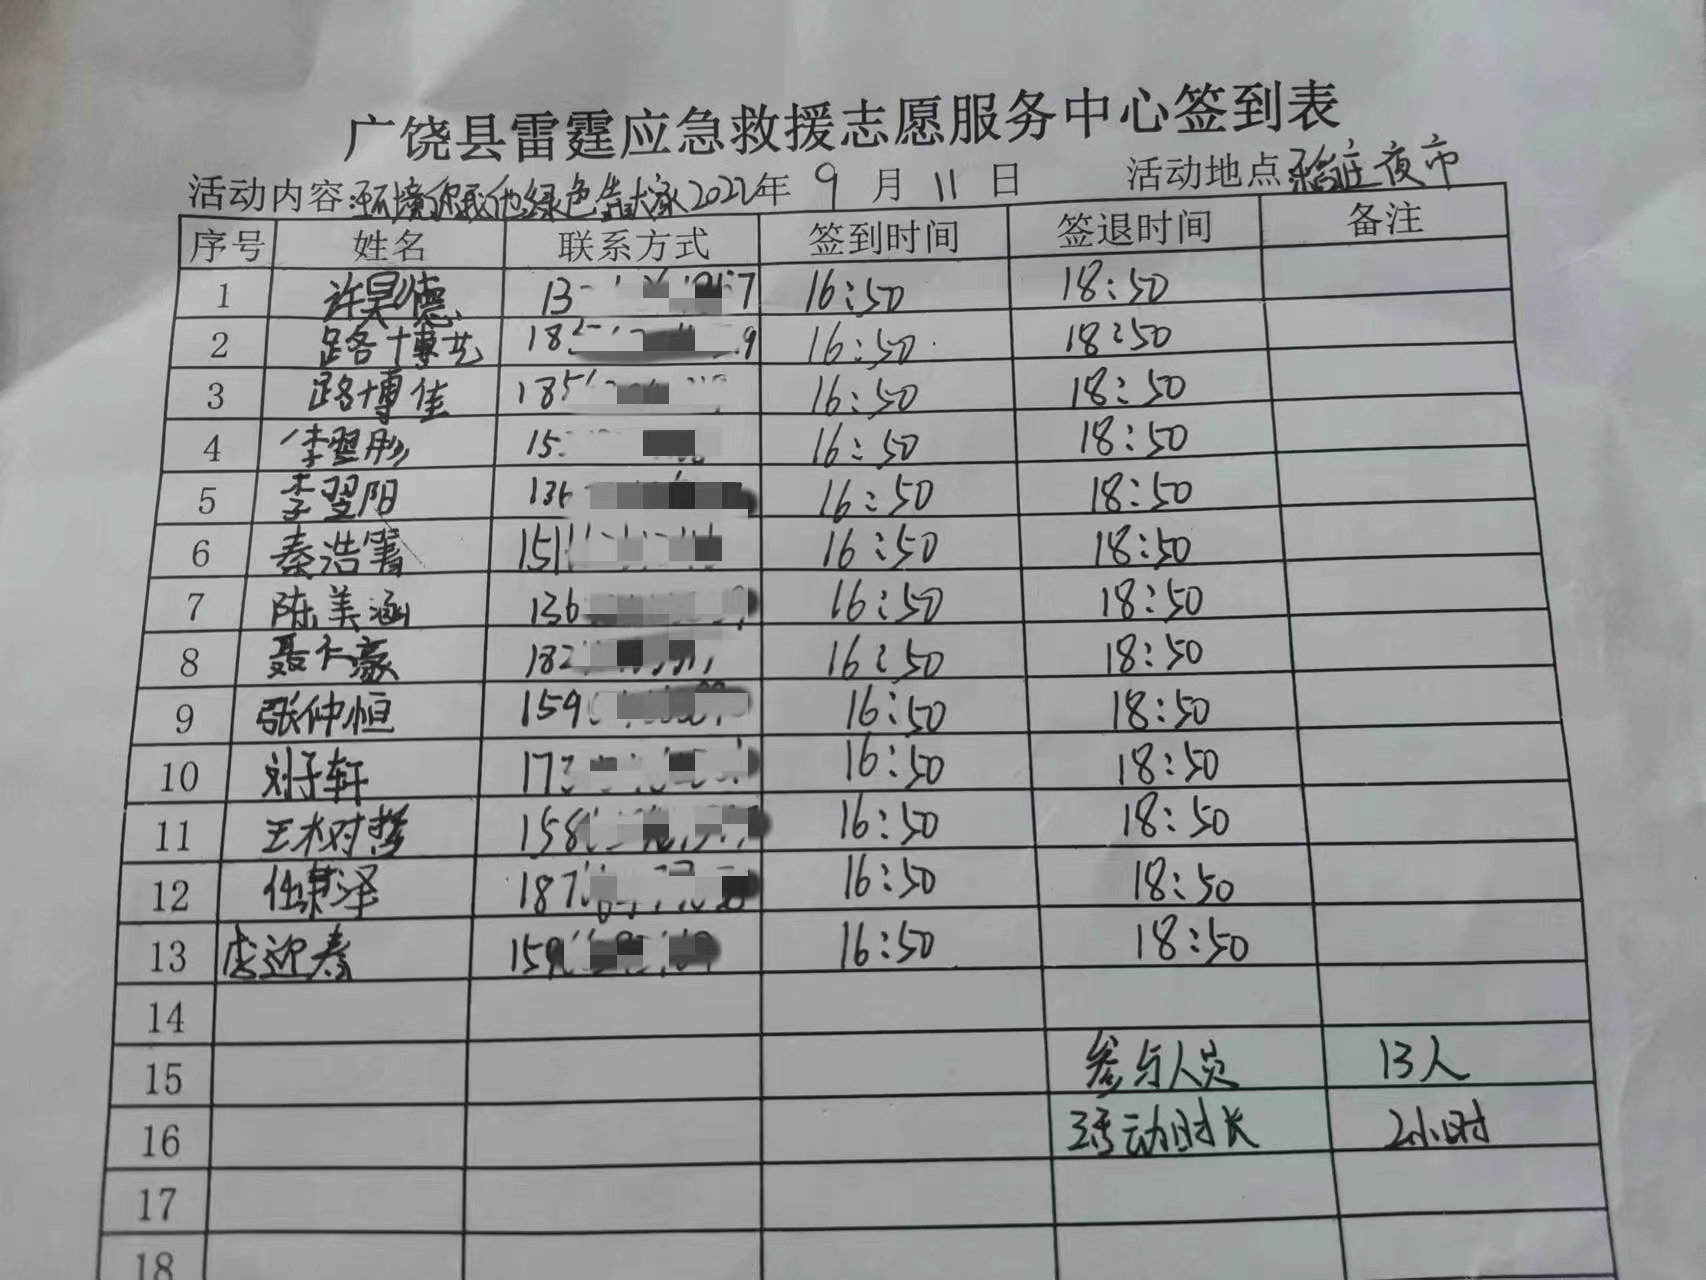 广饶县雷霆应急救援志愿服务中心签到表
活动内容:环境你我他绿色靠大家2022年 9 月 11 日 活动地点 稻庄夜市
序号 姓名 联系方式 签到时间 签退时间 备注
1 许昊德 13 7 16:50 18:50
2 路博艺 18 9 16:50 18:50
3 路博佳 185 16:50 18:50
4 李翌彤 15 16:50 18:50
5 李翌阳 136 16:50 18:50
6 秦浩 151 16:50 18:50
7 陈美涵 136 16:50 18:50
8 聂天豪 182 16:50 18:50
9 张仲恒 159 16:50 18:50
10 刘子轩 173 16:50 18:50
11 王树哲 158 16:50 18:50
12 任泽 187 16:50 18:50
13 迎春 159 16:50 18:50
14
15 参与人员 13人
16 活动时长 2小时
17
18